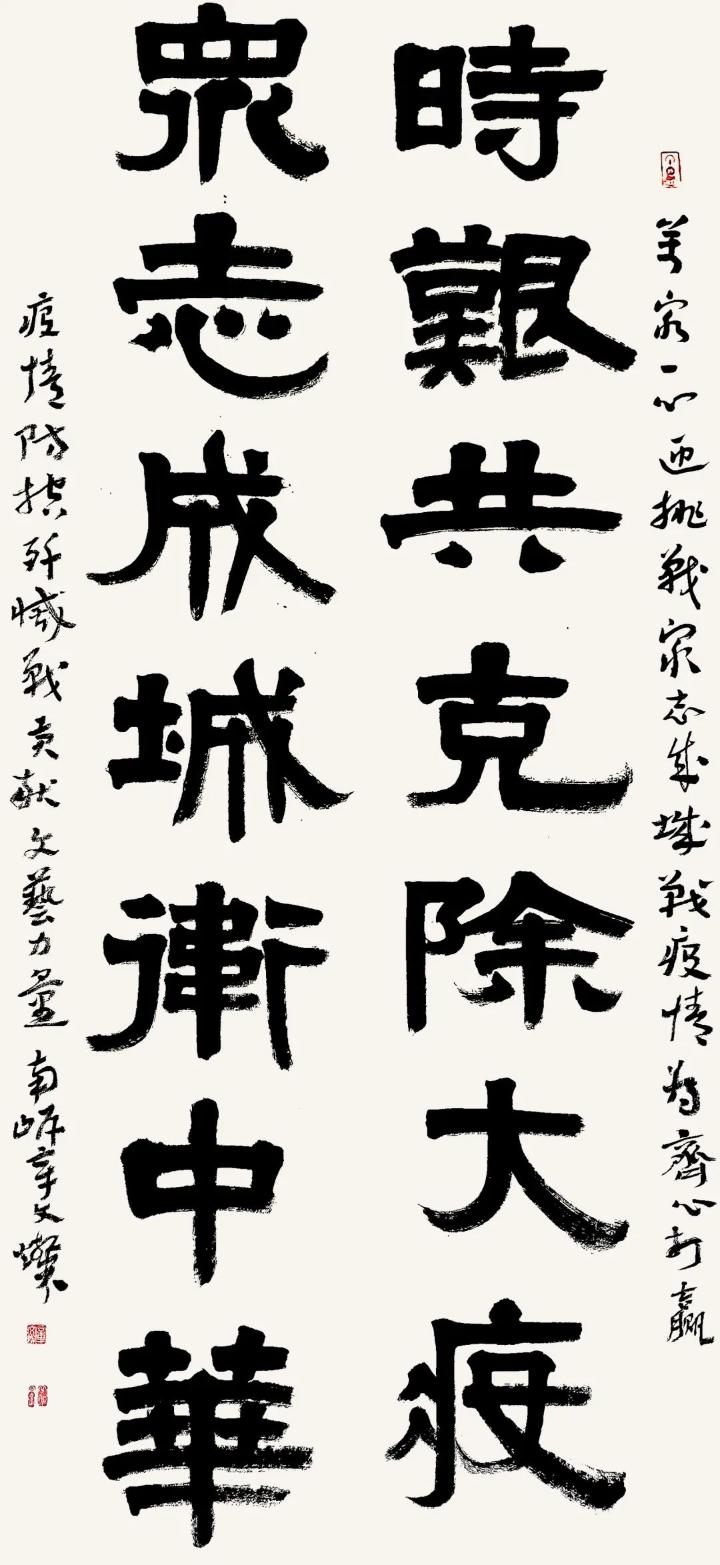 萬眾一心迎挑戰眾志成城戰疫情為齊心打贏
時艱共克除大疫
眾志成城衛中華
疫情防控殲滅戰貢獻文藝力量南文燦